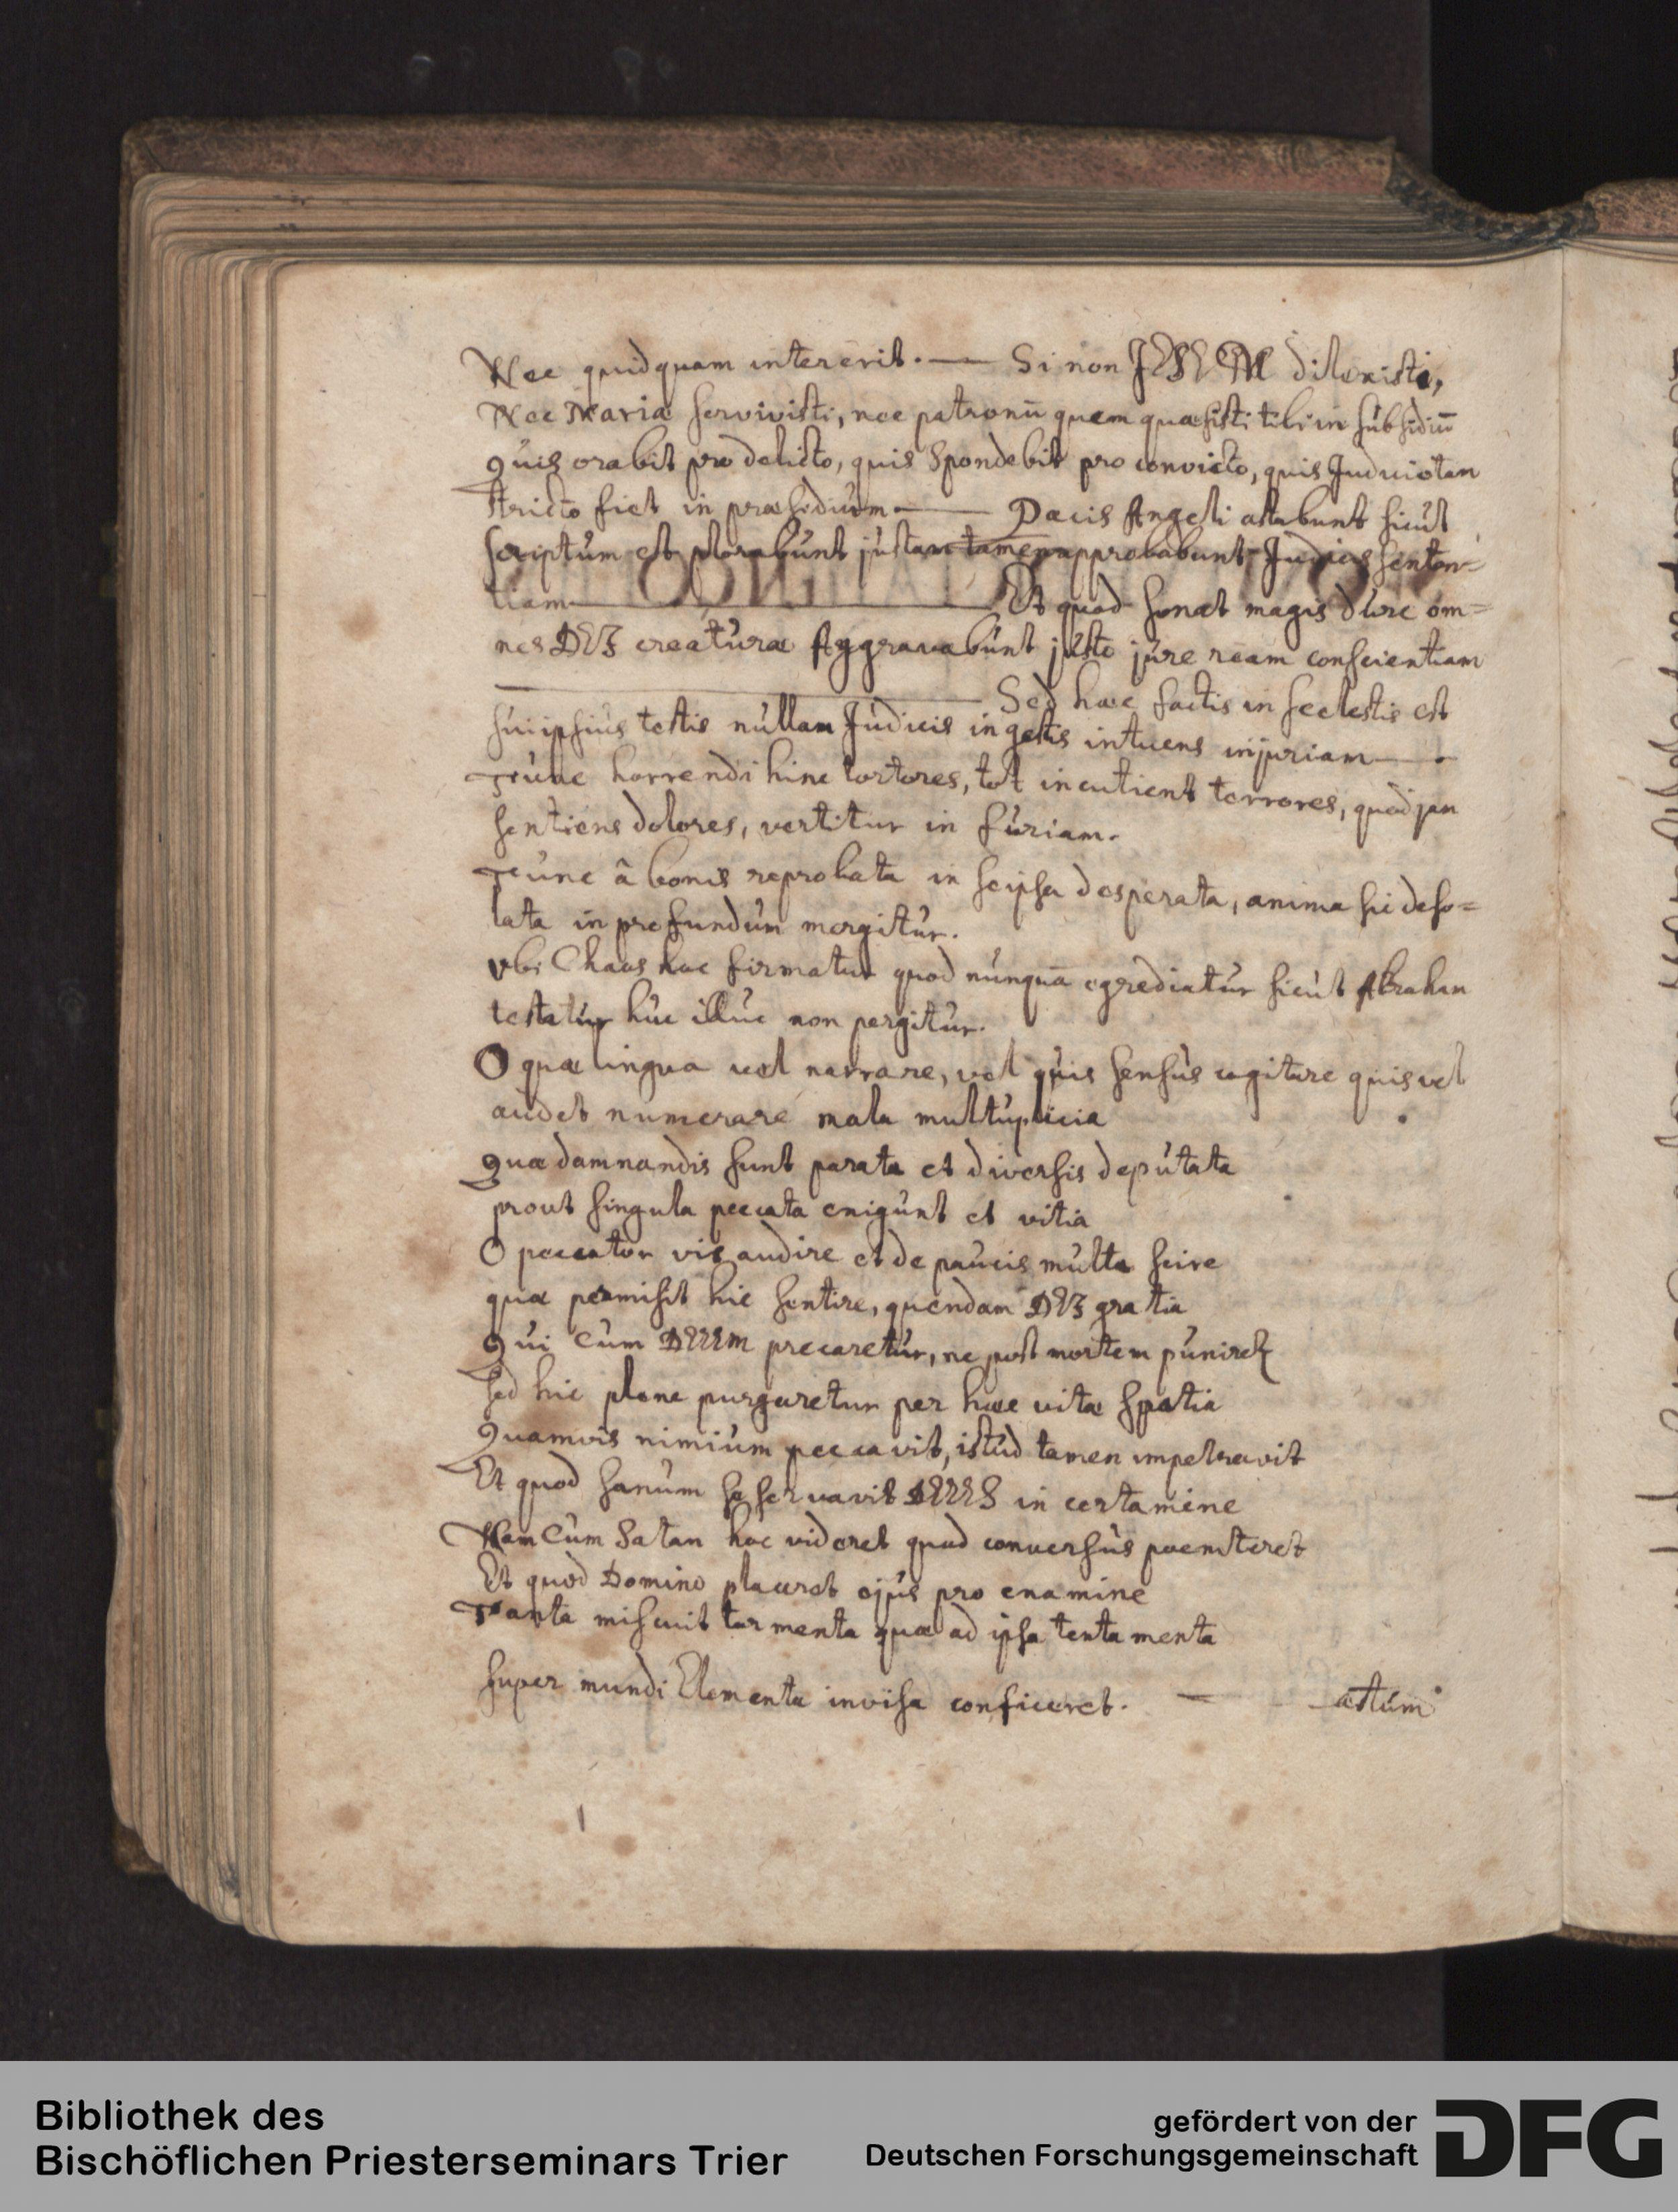 Nec quidquam intererit. — Si non JESUM dilexisti,
Nec Mariæ servivisti, nec patronū quem quæsisti tibi in súbsidiū
Quis orabit pro delicto, quis Spondebit pro convicto, quis Judicio tam
stricto fiet in præsidiúm — Pacis Angeli astabunt sicút
scriptúm est plorabúnt jústam tamen approbabunt Judicis senten=
tiam — Et quod sonat magis dúre om=
nes DEI creatúræ Aggravabúnt jústo júre ream conscientiam
— Sed hæc factis in scelestis est
súi ipsiús testis núllam Júdicis in gestis intuens injuriam —
Túnc horrendi hinc tortores, tot incutient terrores, quod jam
sentiens dolores, vertitur in fúriam.
Túnc â bonis reprobata in seipsa desperata, anima sic deso=
lata in profundúm mergitúr.
Vbi Chaos hoc firmatur quod núnquā egrediatúr sicút Abraham
testatúr húc illúc non pergitúr.
O quæ lingua vel narrare, vel qúis sensús cogitare quis vel
audet numerare mala multúplicia
Quæ damnandis sunt parata et diversis depútata
prout singula peccata exigúnt et vitia
O peccator vis audire et de paúcis múlta scire
quæ permisit hic sentire, quendam DEI gratia
Qúi cúm DEUM precaretúr, ne post mortem púniret
sed hic plene purgaretur per hæc vitæ spatia
Quamvis nimiúm peccavit, istúd tamen impetravit
Et quod sanúm se servavit DEUS in certamine
Nam Cúm Satan hoc videret quod conversús poeniteret
Et quod Domino placeret ejús pro examine
Tanta miscuit tormenta quæ ad ipsa tentamenta
super mundi Elementa invisa conficeret. — æstúm
Bibliothek des
Bischöflichen Priesterseminars Trier
gefördert von der
Deutschen Forschungsgemeinschaft
DFG